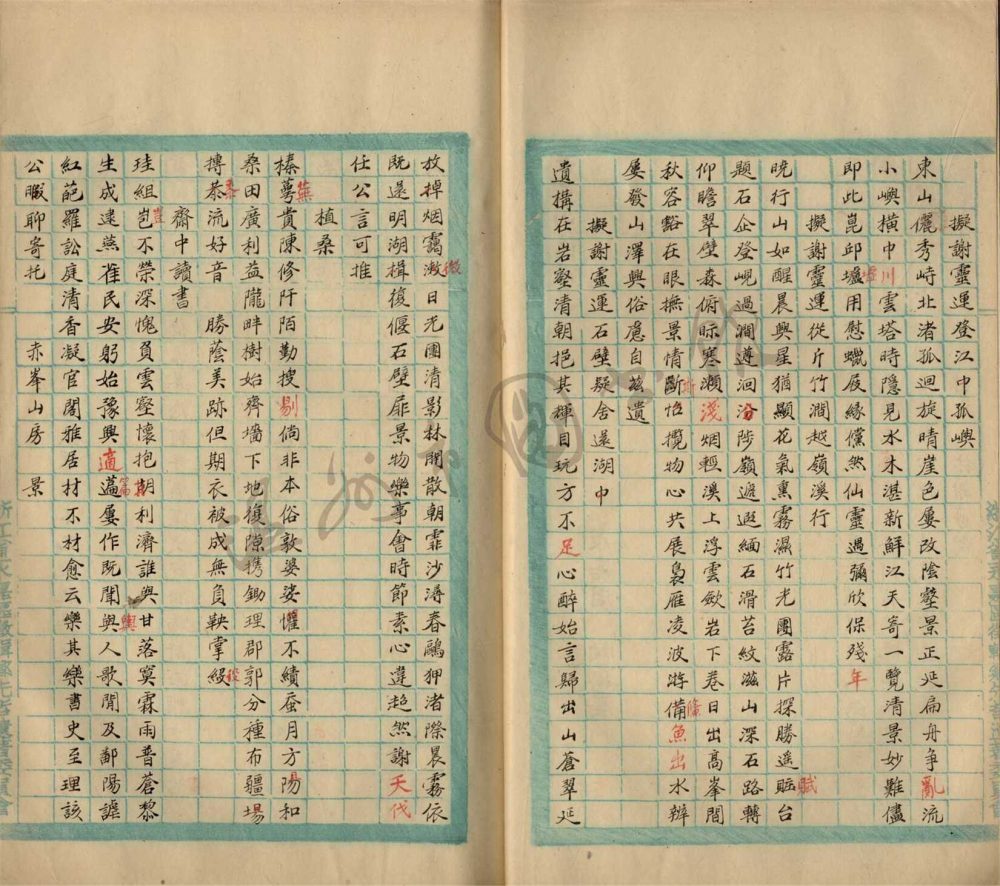 擬謝靈運登江中孤嶼
東山儷秀峙北渚孤迴旋晴崖色屢改陰壑景正延扁舟爭亂流
小嶼橫中川雲塔時隱見水木湛新鮮江天寄一覽清景妙難儘
即此崑邱壚用慰蠟屐緣儻然仙靈遇彌欣保殘年
擬謝靈運從斤竹澗越嶺溪行
曉行山如醒晨興星猶顯花氣熏霧濕竹光團露片探勝遥臨台
題石企登峴過澗遵洄汾陟嶺遞遐緬石滑苔紋滋山深石路轉
仰瞻翠壁森俯眎寒瀨淺烟輕溪上浮雲斂岩下卷日出高峯間
秋容豁在眼撫景情斷悟攬物心共展裊雁凌波游備魚出水辦
屢發山澤興俗慮自茲遺
擬謝靈運石壁凝舍還湖中
遺搆在岩壑清朝挹其輝目玩方不足心醉始言歸出山蒼翠延
放棹烟靄漵日光團清影林間散朝霏沙潯春鷗狎渚際晨霧依
既還明湖楫復偃石壁扉景物樂事會時節素心違超然謝天伐
任公言可推
植桑
榛蕚貴陳修阡陌勤搜剔倘非本俗敦婆娑懼不績蚕月方陽和
桑田廣利益隴畔樹始齊墻下地復隙携鋤理郡郭分種布疆場
摶叅流好音 勝蔭美跡但期衣被成無負鞅掌綬
齋中讀書
珪組豈不榮深愧負雲壑懷抱朝利濟誰與甘落寞霖雨普蒼黎
生成逮燕雀民安躬始豫興適逼屢作既聞與人歌聞及鄱陽謔
紅葩羅訟庭清香凝官閣雅居材不材愈云樂其樂書史至理該
公暇聊寄托 赤峯山房 景